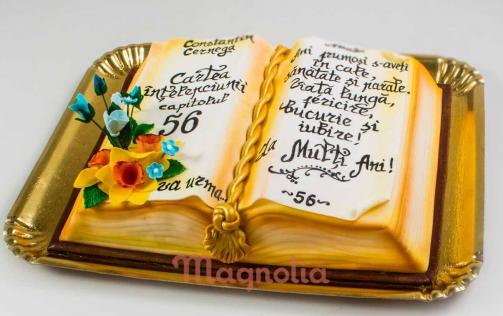 Constantin
Cernega
Cartea
înțelepciunii
capitolul
56
va urma
Ani frumoși s-aveți
în cale,
sănătate și parale.
Viață lungă,
fericire,
Bucurie și
iubire!
La Mulți Ani!
~56~
Magnolia